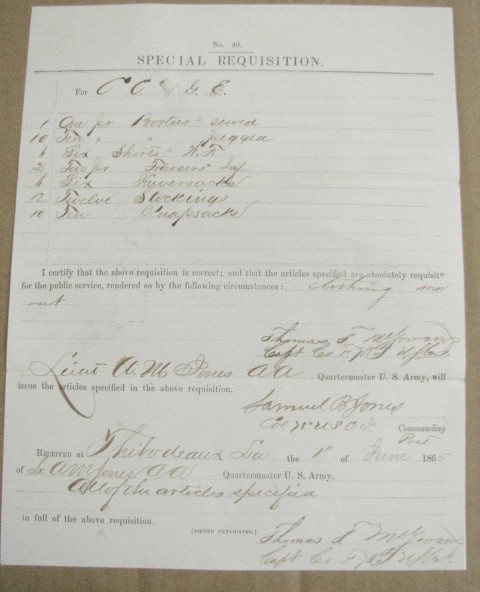 No. 40.
SPECIAL REQUISITION.
For C C. and G. E.
1 One pr Booties " sewed
10 Ten " " pegged
6 Six Shirts W. F.
2 Two pr Trowsers Inf
6 Six Haversacks
12 Twelve Stockings
10 Ten Knapsacks
I certify that the above requisition is correct; and that the articles specified are absolutely requisite
for the public service, rendered so by the following circumstances: clothing worn
out
Thomas F McGowan
Capt Co
Lieut A. M. Jones A A Quartermaster U. S. Army, will
issue the articles specified in the above requisition.
Samuel B Jones
Col 78 U S C I.
Commanding
Post
Received at Thibodeaux La the 1st of June 1865
of Lt A M Jones A A Quartermaster U. S. Army,
All of the articles specified
in full of the above requisition.
(SIGNED DUPLICATES.)
Thomas F McGowan
Capt Co